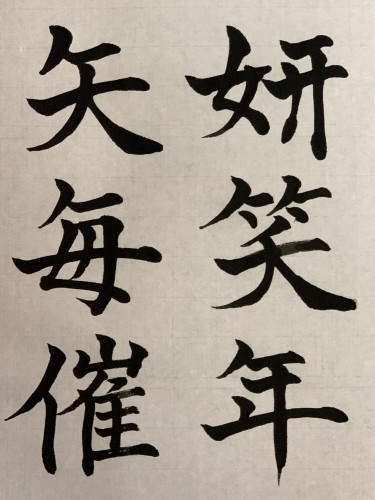 妍笑年
矢每催